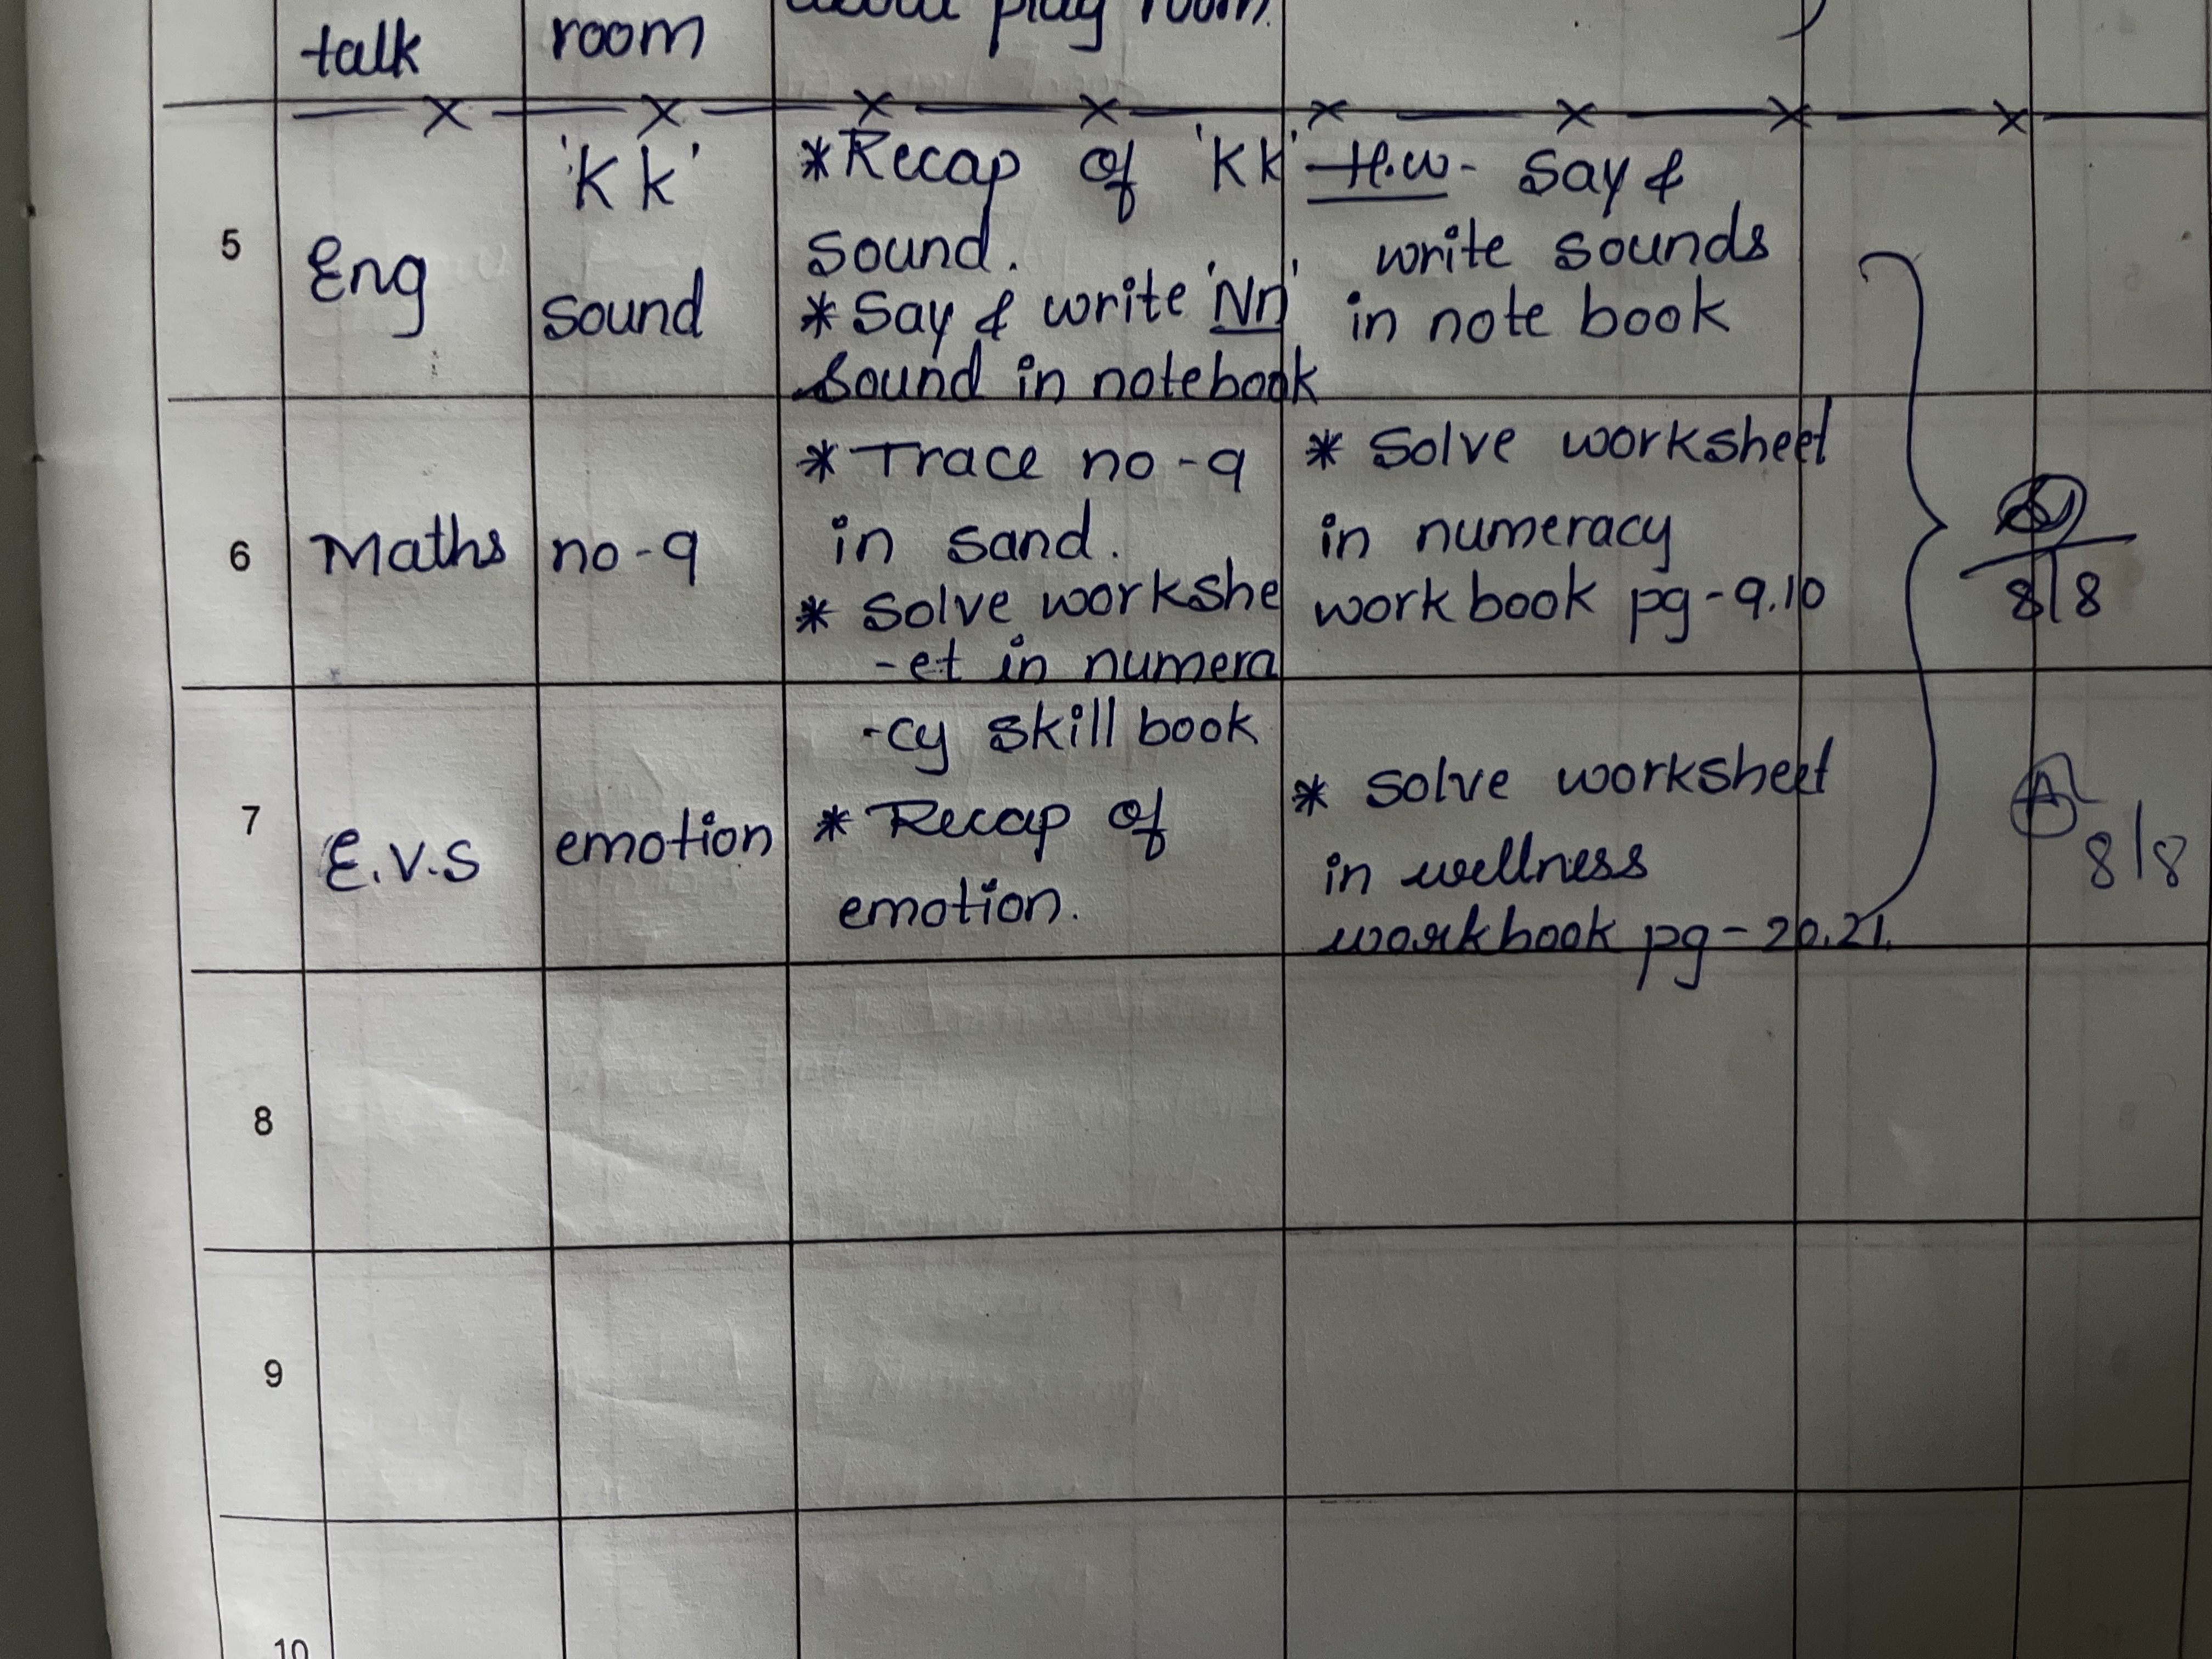 about play room.
talk
room
5
Eng
'Kk'
sound
*Recap of 'Kk'
sound.
* Say & write 'Nn'
sound in notebook
H.W - Say &
write sounds
in note book
6
Maths
no-9
* Trace no-9
in sand.
* Solve workshe
-et in numera
-cy skill book
* Solve worksheet
in numeracy
workbook pg-9.10
8/8
7
E.V.S
emotion
* Recap of
emotion.
* Solve worksheet
in wellness
workbook pg-20.21.
8/8
8
9
10